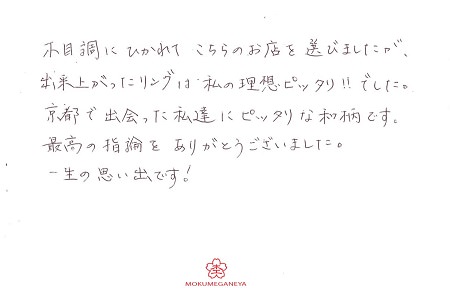 木目調にひかれて こちらのお店を選びましたが、
出来上がったリングは 私の理想ピッタリ!!でした。
京都で出会った私達にピッタリな和柄です。
最高の指論を ありがとうございました。
一生の思い出です!
MOKUMEGANEYA